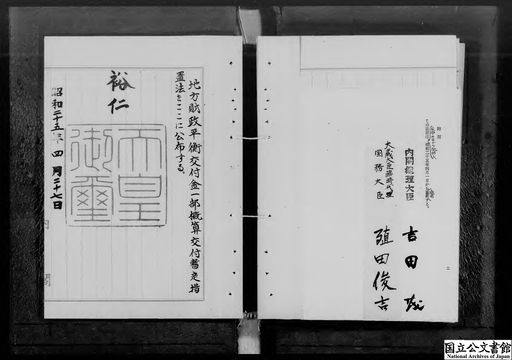 地方財政平衡交付金一部概算交付暫定措
置法をここに公布する。
裕仁
天皇御璽
昭和二十五年四月二十七日
内閣
内閣総理大臣 吉田茂
大蔵大臣臨時代理
国務大臣 殖田俊吉
国立公文書館
National Archives of Japan